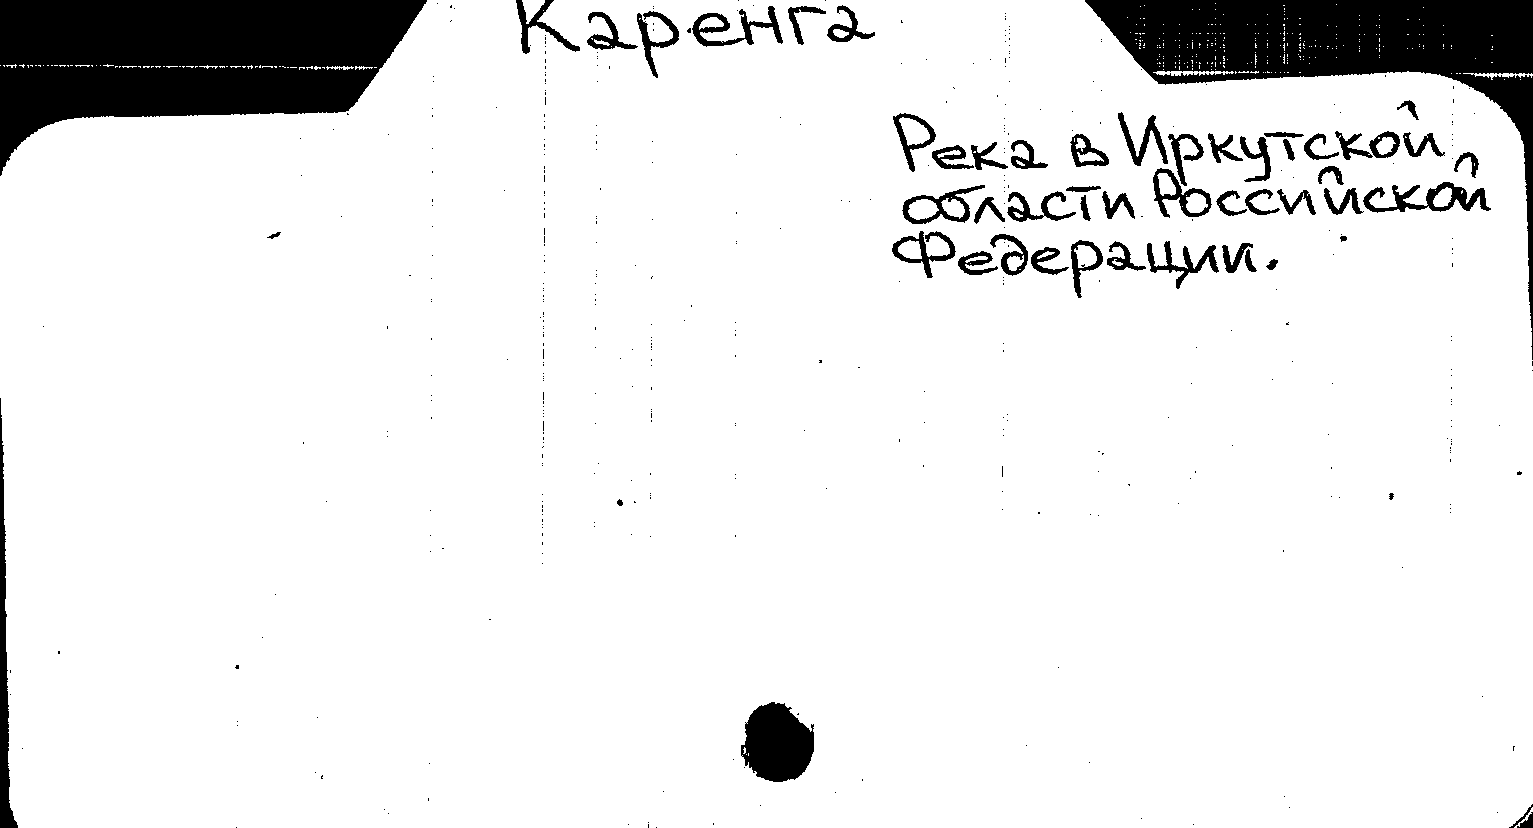 Каренга
Река в Иркутской
области Российской
Федерации.